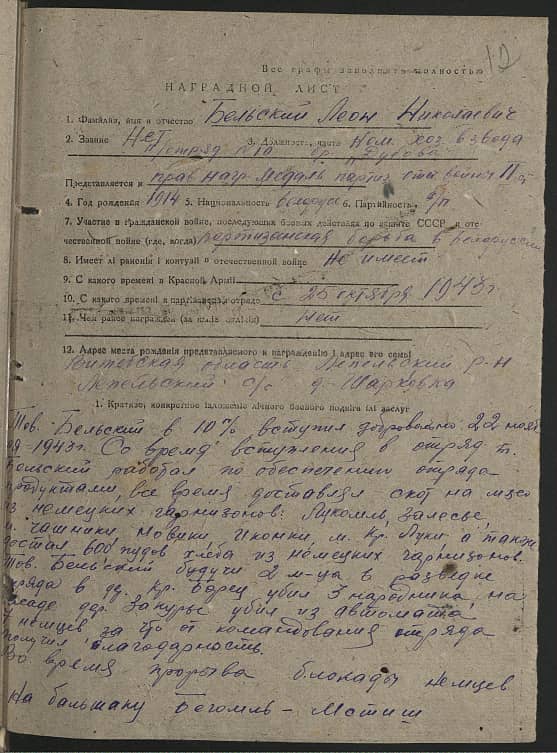 12
Все графы заполнять полностью
НАГРАДНОЙ ЛИСТ
1. Фамилия, имя и отчество Бельский Леон Николаевич
2. Звание Нет 3. Должность, часть Ком. хоз. взвода
отряд №10 бр. Дубова
Представляется к прав. нагр. медаль партиз. отеч. войны II ст
4. Год рождения 1914 5. Национальность белорус 6. Партийность б/п
7. Участие в гражданской войне, последующих боевых действиях по защите СССР и оте-
чественной войне (где, когда) партизанская борьба в Белоруссии
8. Имеет лі раненія і контузіі в отечественной войне Не имеет
9. С какого временi в Красной Арміі
10. С какого временi в партiзанском отряде с 25 октября 1943 г.
11. Чем ранее награжден (за какiе отлiчiя) нет
12. Адрес места рожденiя представляемого к награжденiю i адрес его семьi
Витебская область Лепельский р-н
Лепельский с/с д. Шарковка
1. Краткое, конкретное iзложенiе лiчного боевого подвiга iлi заслуг
Тов. Бельский в 10% вступил добровольно 22 нояб
ря 1943 г. Со время вступления в отряд т.
Бельский работал по обеспечению отряда
продуктами, все время доставлял скот на мясо
из немецких гарнизонов: Лукомль, Залесье,
м. Чашники, Новики, Иконки, м. Кр. Луки, а также
достал 800 пудов хлеба из немецких гарнизонов.
Тов. Бельский будучи 2 м-ца в разведке
отряда в д. Кр. Борец убил 3 народника, на
засаде дер. Закурье убил из автомата
немцев за что от командования отряда
получил благодарность.
Во время прорыва блокады немцев
На большаку Бегомль - Мстиш